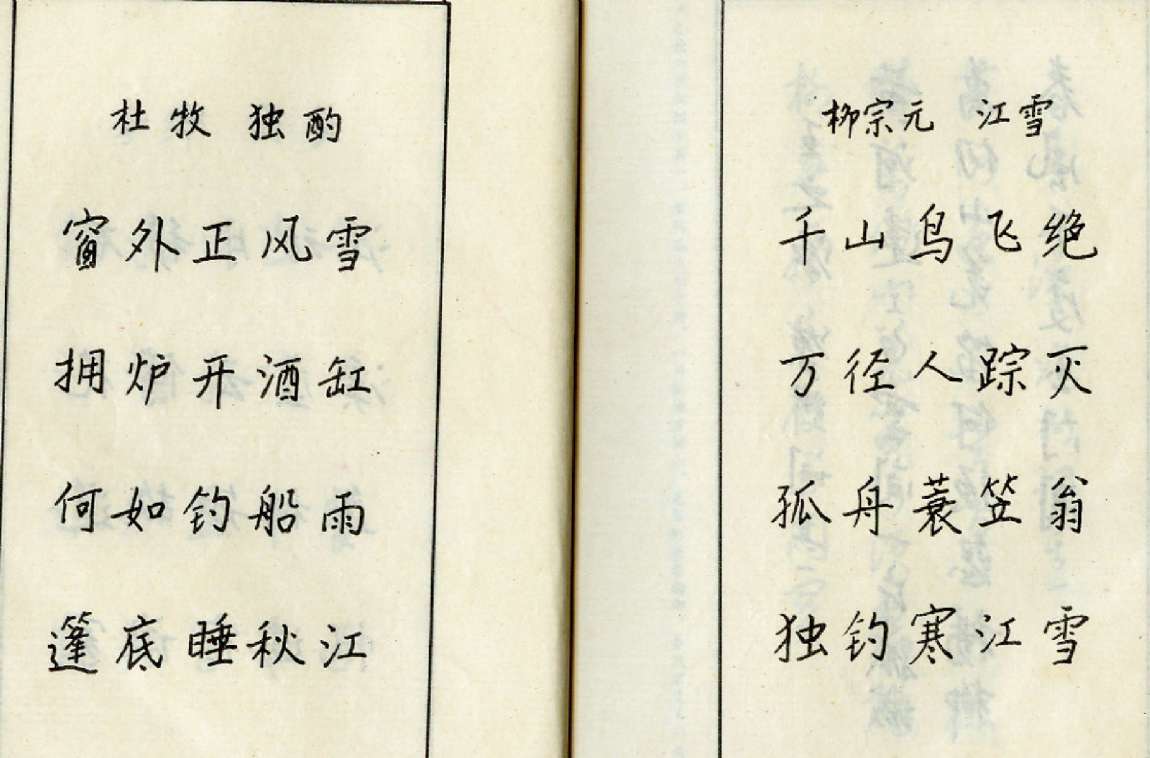 杜牧 独酌
窗外正风雪
拥炉开酒缸
何如钓船雨
篷底睡秋江
柳宗元 江雪
千山鸟飞绝
万径人踪灭
孤舟蓑笠翁
独钓寒江雪